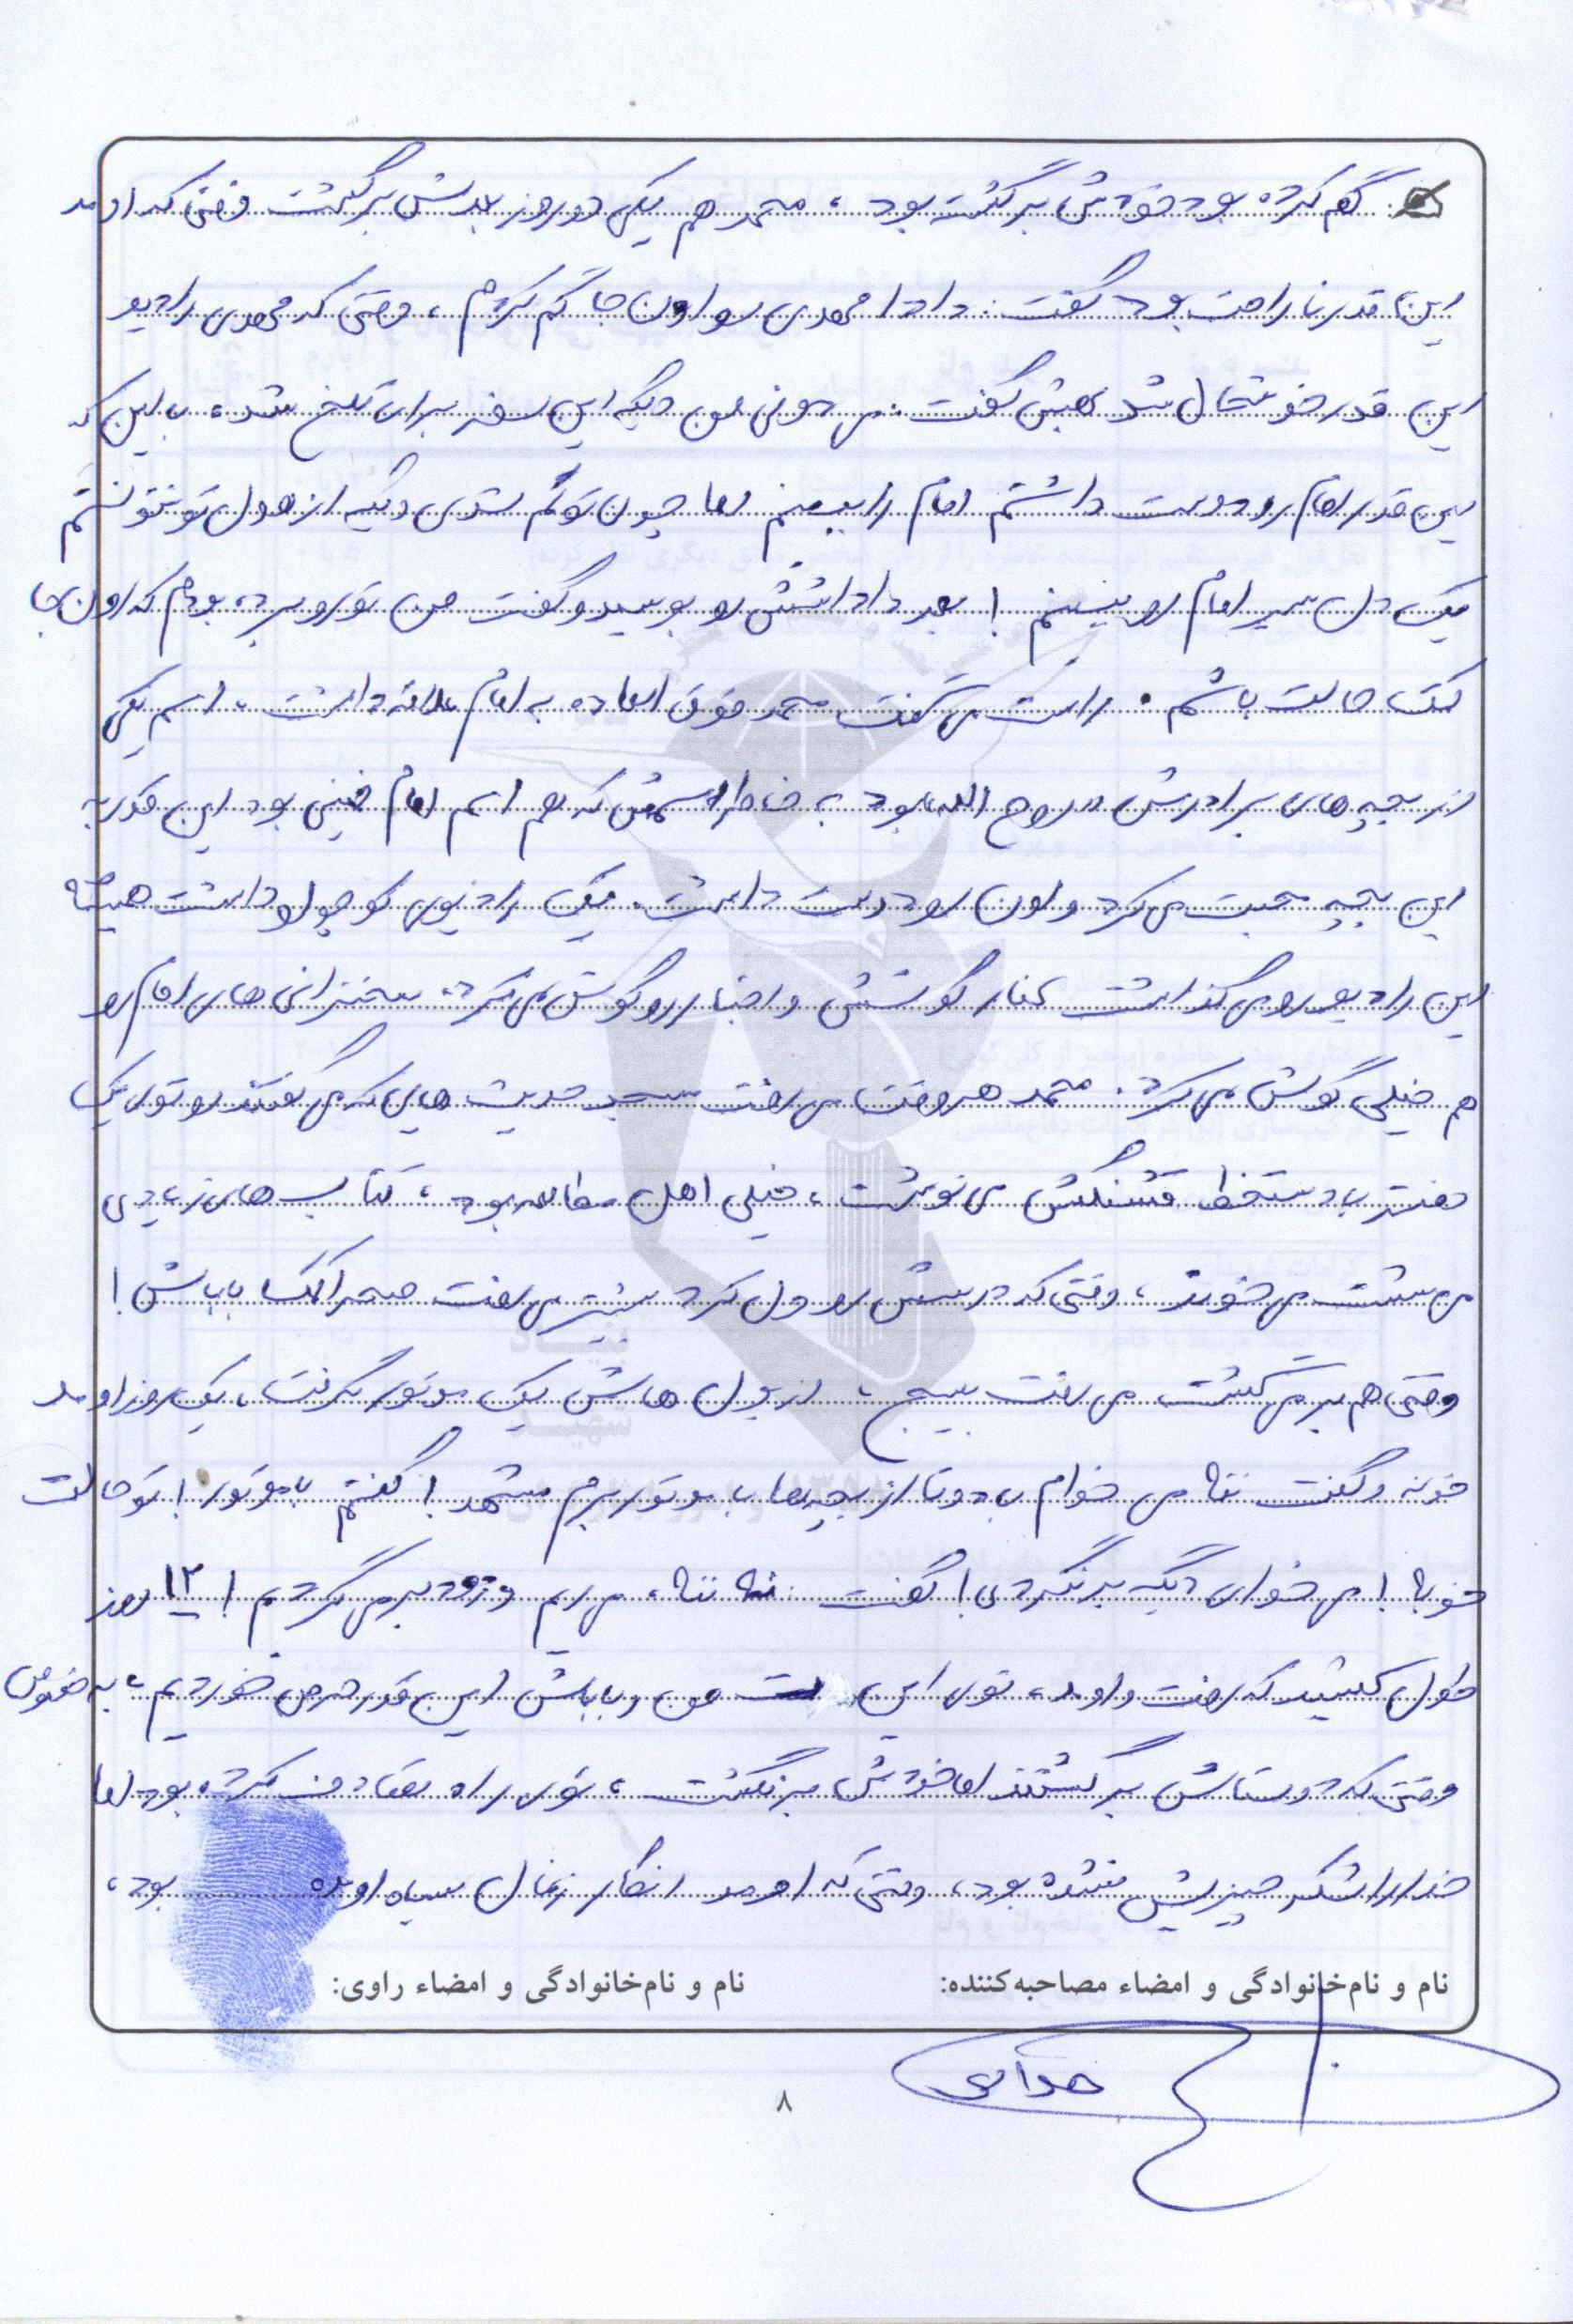 گم کرده بود خودش برگشته بود، محمد هم یکی دو روز بعدش برگشت وقتی که اومد
این قدر ناراحت بود گفت: دادا مهدی رو اون جا گم کردم، وقتی که مهدی را دید
این قدر خوشحال شد بهش گفت: می دونی من دیگه این سفر برام تلخ شد، با این که
این قدر امام رو دوست داشتم امام را ببینم اما چون تو گم شدی دیگه از هول تو نتونستم
یک دل سیر امام رو ببینم! بعد داداشش رو بوسید و گفت من تو رو برده بودم که اون جا
کمک حالت باشم. راست می گفت محمد فوق العاده به امام علاقه داشت، اسم یکی
از بچه های برادرش روح الله بود به خاطر اسمش که هم اسم امام خمینی بود این قدر به
این بچه محبت می کرد و اون رو دوست داشت. یک رادیوی کوچولو داشت همیشه
این رادیو رو می گذاشت کنار گوشش و اخبار رو گوش می کرد، سخنرانی های امام رو
هم خیلی گوش می کرد. محمد هر وقت می رفت مسجد حدیث هایی که می گفتند رو توی یک
دفتر با دستخط قشنگش می نوشت، خیلی اهل مطالعه بود، کتاب های زیادی
می نشست می خوند، وقتی که درسش رو ول کرد بیشتر می رفت صحرا کمک باباش!
وقتی هم برمی گشت می رفت بسیج، از پول هاش یک موتور گرفت، یک روز اومد
خونه و گفت ننه می خوام با دو تا از بچه ها با موتور برم مشهد! گفتم با موتور! تو حالت
خوبه! می خوای دیگه برنگردی! گفت: نه ننه، می ریم و زود برمی گردیم! ۱۲ روز
طول کشید که رفت و اومد، توی این مدت من و باباش این قدر حرص خوردیم، به خصوص
وقتی که دوستاش برگشتند اما خودش برنگشت، توی راه تصادف کرده بود اما
خدا را شکر چیزیش نشده بود، وقتی که اومد انگار زغال سیاه اومده بود،
نام و نام‌خانوادگی و امضاء مصاحبه‌کننده: نام و نام‌خانوادگی و امضاء راوی:
۸